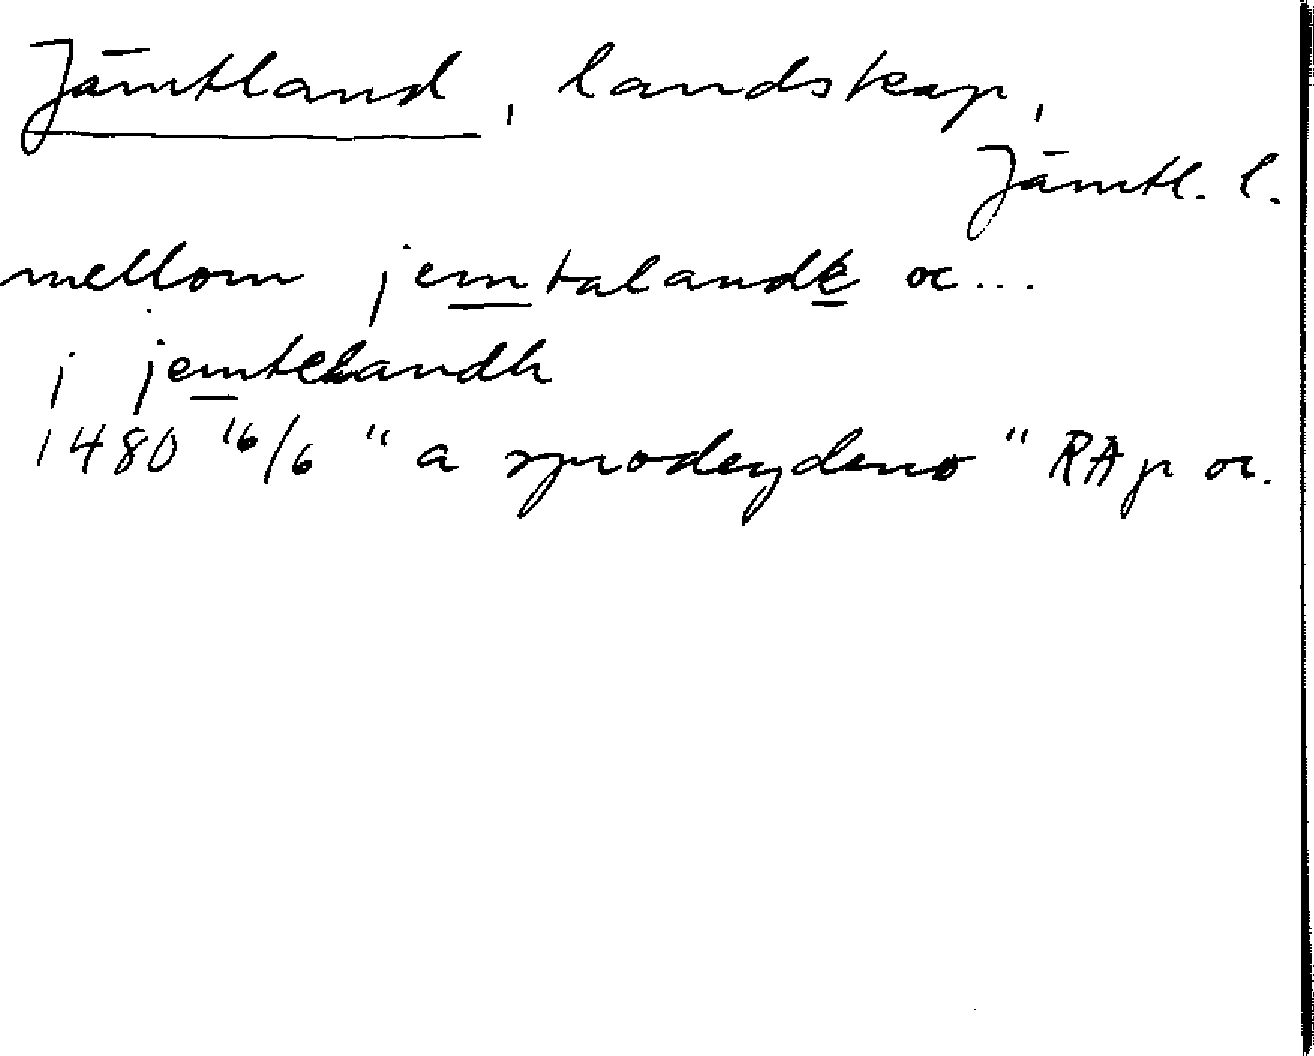 Jämtland, landskap,
Jämtl. l.
mellom jemtalandk oc...
j jemtelandh
1480 16/6 "a sprodeydeno" RAp or.